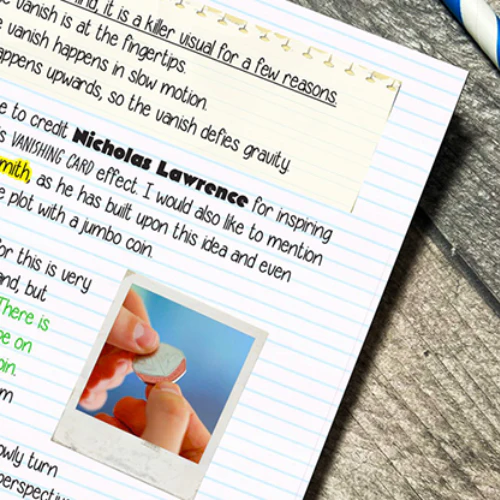 it is a killer visual for a few reasons.
vanish is at the fingertips.
vanish happens in slow motion.
appens upwards, so the vanish defies gravity.
e to credit Nicholas Lawrence for inspiring
is VANISHING CARD effect. I would also like to mention
mith, as he has built upon this idea and even
e plot with a jumbo coin.
or this is very
and, but
There is
pe on
oin.
m
owly turn
perspectiv